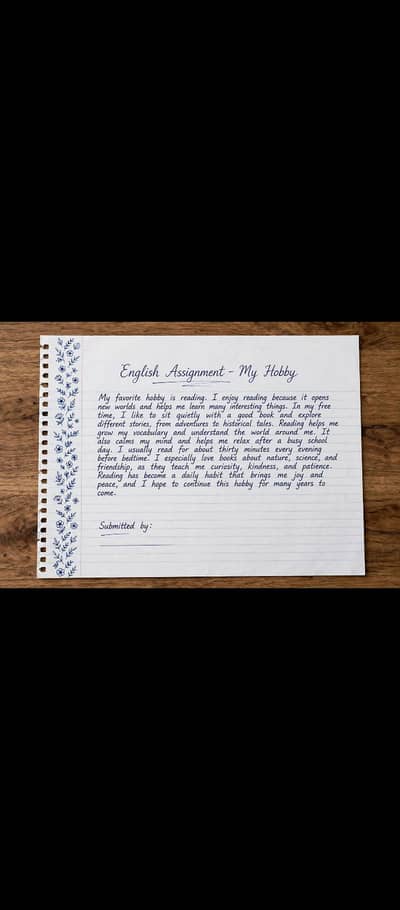 English Assignment - My Hobby
My favorite hobby is reading. I enjoy reading because it opens
new worlds and helps me learn many interesting things. In my free
time, I like to sit quietly with a good book and explore
different stories, from adventures to historical tales. Reading helps me
grow my vocabulary and understand the world around me. It
also calms my mind and helps me relax after a busy school
day. I usually read for about thirty minutes every evening
before bedtime. I especially love books about nature, science, and
friendship, as they teach me curiosity, kindness, and patience.
Reading has become a daily habit that brings me joy and
peace, and I hope to continue this hobby for many years to
come.
Submitted by: